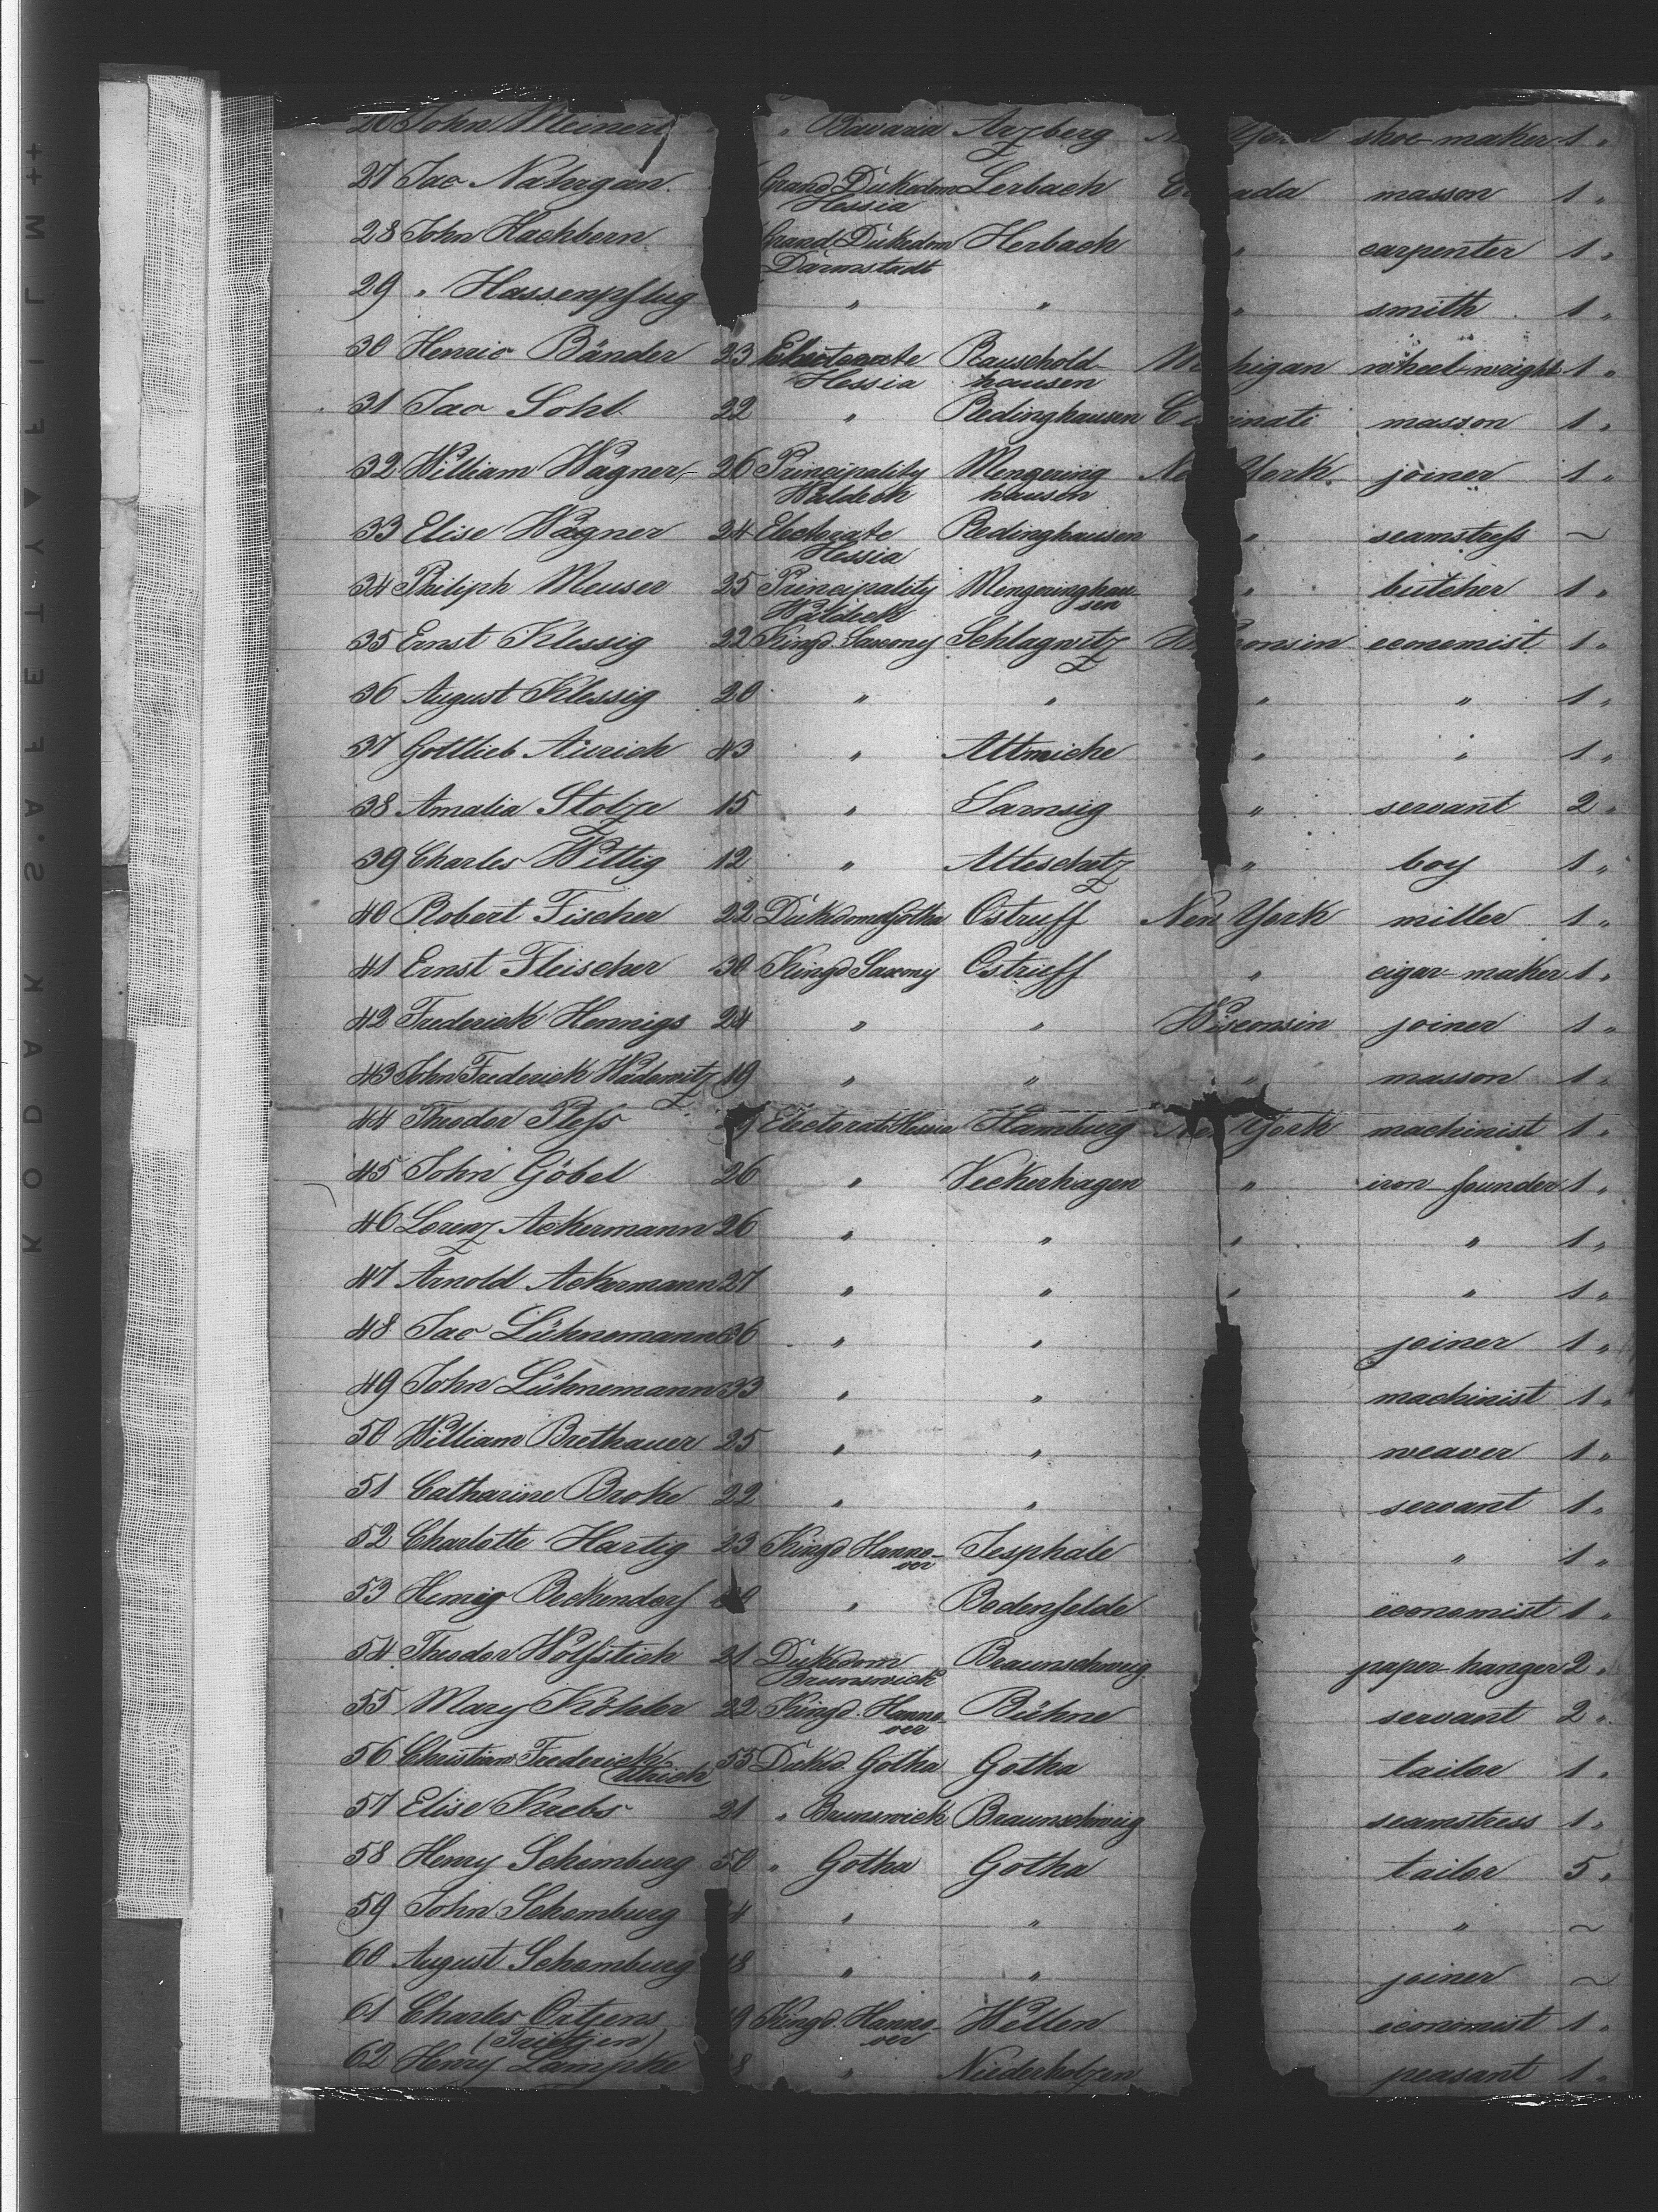 26 John Meinert " Bavaria Arzberg York shoe-maker 1 "
27 Jac Nahrgan Grand Dukedom Lerbach ada masson 1 "
Hessia
28 John Hachborn Grand Dukedom Herbach " carpenter 1 "
Darmstadt
29 " Hassenpflug " " " smith 1 "
30 Henric Bänder 23 Electorate Rauschold- Mi higan wheel-wright 1 "
Hessia hausen
31 Jac Sohl 22 " Redinghausen Ci cinati masson 1 "
32 William Wagner 26 Principality Mengering Ne York joiner 1 "
Waldeck hausen
33 Elise Wagner 24 Electorate Redinghausen " seamstress ~
Hessia
34 Philiph Meuser 25 Principality Mengeringhau- " butcher 1 "
Waldeck sen
35 Ernst Klessig 22 Kingd. Saxony Schlagwitz onsin economist 1 "
36 August Klessig 20 " " " " 1 "
37 Gottlieb Aurich 43 " Altmiche " " 1 "
38 Amalia Stolze 15 " Sarnsig " servant 2 "
39 Charles Wittig 12 " Alteschatz " boy 1 "
40 Robert Fischer 22 Dukedom Gotha Ostruff New York miller 1 "
41 Ernst Fleischer 30 Kingd Saxony Ostruff " cigar-maker 1 "
42 Frederick Hennigs 24 " " Wisconsin joiner 1 "
43 John Frederick Wadewitz 19 " " " masson 1 "
44 Theodor Pless 9 Electorate Hessia Hamburg New York machinist 1 "
45 John Göbel 26 " Veckerhagen " iron founder 1 "
46 Lorenz Ackermann 26 " " " " 1 "
47 Arnold Ackermann 27 " " " " 1 "
48 Jac Lühnemann 36 " " joiner 1 "
49 John Lühnemann 33 " " machinist 1 "
50 William Brethauer 25 " " weaver 1 "
51 Catharine Broke 22 " " servant 1 "
52 Charlotte Hartig 23 Kingd Hanno- Jesphale " 1 "
ver
53 Henrig Beckendorf " Bodenfelde economist 1 "
54 Theodor Wolfstich 21 Dukedom Braunschweig paper-hanger 2 "
Brunswick
55 Mary Köhler 22 Kingd. Hanno- Bühne servant 2 "
ver
56 Christian Frederick 55 Dukd. Gotha Gotha tailor 1 "
Ullrich
57 Elise Krebs 21 " Brunswick Braunschweig seamstress 1 "
58 Henry Schomburg 50 " Gotha Gotha tailor 5 "
59 John Schomburg 4 " " " ~
60 August Schomburg 18 " " joiner ~
61 Charles Oitjens 19 Kingd. Hanno- Wellen economist 1 "
(Trietjen) ver
62 Henry Lampke 8 " Niederholzen peasant 1 "